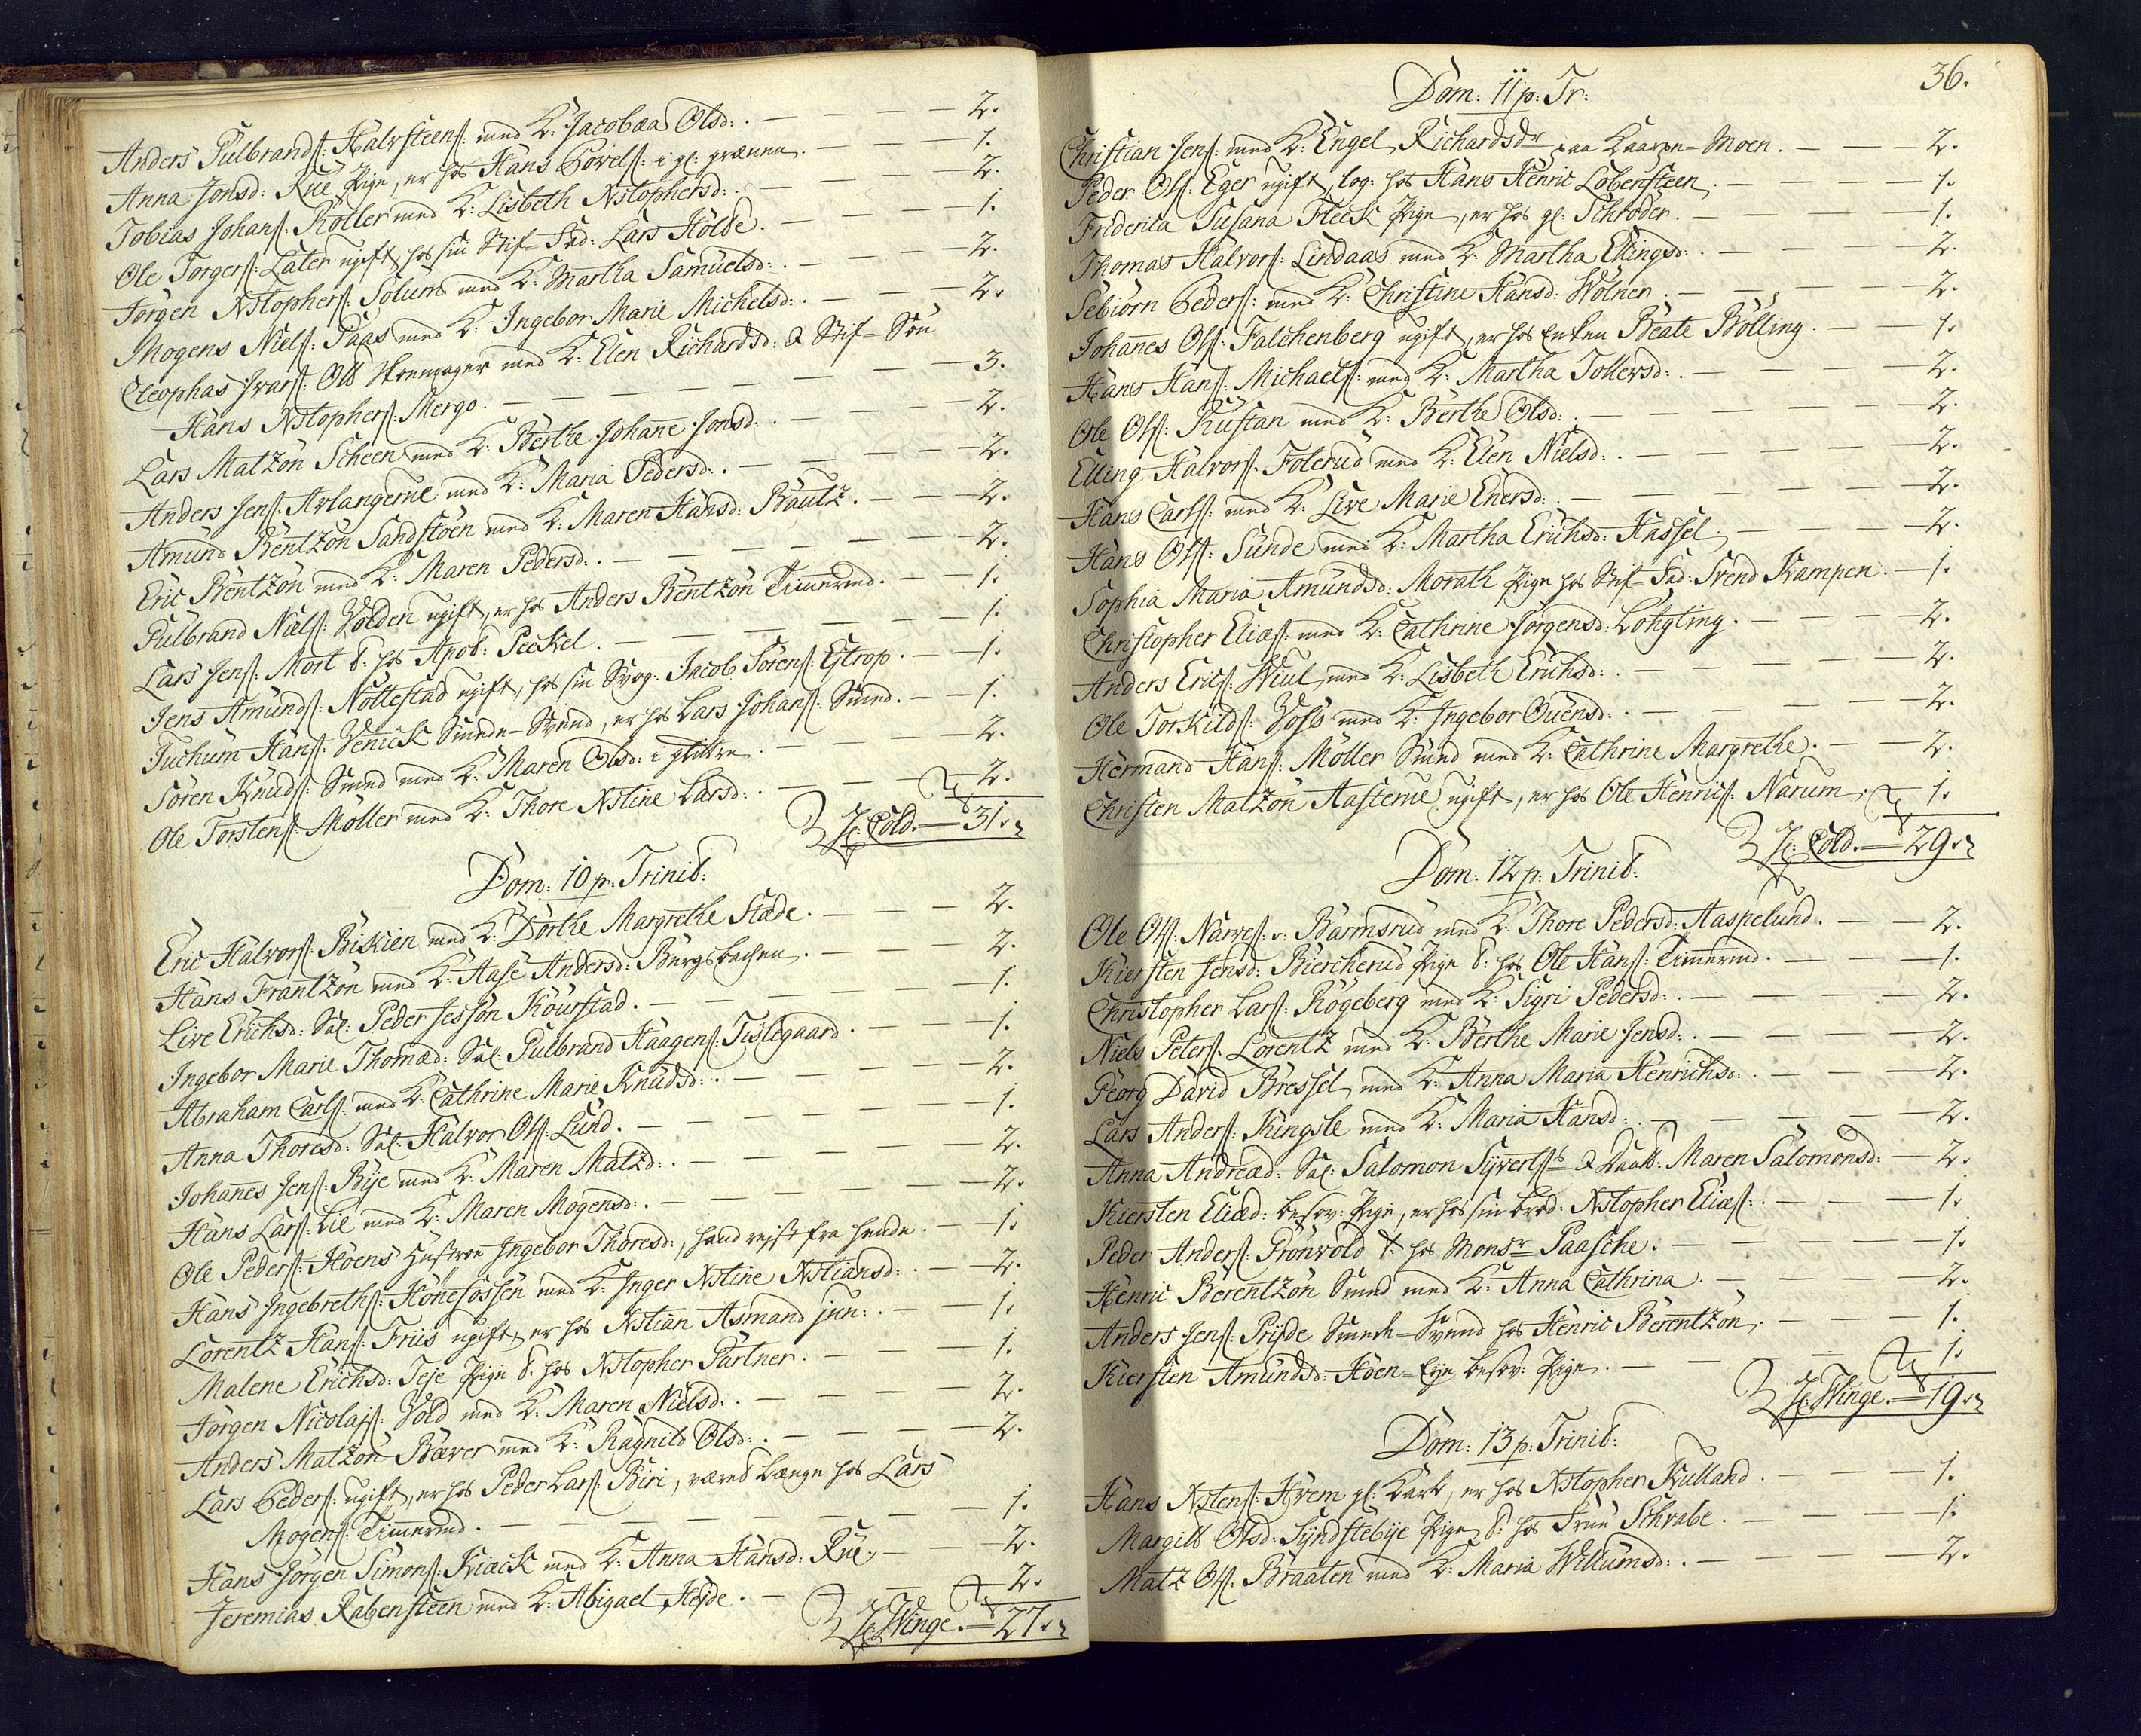 Anders Gulbrands: Halvsteens: med K: Jacobæa Olsd: . — — — 2.
Anna Jonsd: Rue Pige, er hos Hans Povels: i gl: grænna. — — — 1.
Tobias Johans: Koller med K: Lisbeth Xstophersd: . — — — 2.
Ole Torgers: Later ugift, hos sin Stif-Fad: Lars Holde. — — — 1.
Jörgen Xstophers: Solum med K: Martha Samuelsd: . — — — 2.
Mogens Niels: Saas med K: Ingebor Marie Michelsd: . — — — 2.
Cleophas Ivars: Ott Skomager med K: Elen Richardsd: & Stif-Sön
Hans Xstophers: Mergo. — — — 3.
Lars Matzön Scheen med K: Berthe Johanne Jonsd: . — — — 2.
Anders Jens: Arlangerne med K: Maria Pedersd: . — — — 2.
Amund Bentzön Sandstöen med K: Maren Hansd: Bautz. — — — 2.
Eric Bentzön med K: Maren Pedersd: . — — — 2.
Gulbrand Niels: Volden ugift, er hos Anders Bentzön Timermd. — — 1.
Lars Jens: Mort t: hos Apot: Peckel. — — — 1.
Jens Amunds: Nottestad ugift, hos sin Svog: Jacob Sörens: Estrop. — — 1.
Juchum Hans: Venick Smede-Svend, er hos Lars Johans: Smed. — — 1.
Sören Knuds: Smed med K: Maren Olsd: i glitre. — — 2.
Ole Torstens: Möller med K: Thore Xstine Larsd: . — — 2.
H: Cold. — 31.
Dom: 10 p: Trinit:
Eric Halvors: Bikien med K: Dorthe Margrethe Stade. — — — 2.
Hans Frantzön med K: Aase Andersd: Bergsbachen. — — 2.
Live Erichsd: Sal: Peder Jessön Kourstad. — — — 1.
Ingebor Marie Thomæd: Sal: Gulbrand Haagens: Tislegaard. — — 1.
Abraham Carls: med K: Cathrine Marie Knudsd: . — — — 2.
Anna Thoresd: Sal: Halvor Ols: Lund. — — — 1.
Johanes Jens: Bije med K: Maren Matzd: . — — — 2.
Hans Lars: Lie med K: Maren Mogensd: . — — — 2.
Ole Peders: Hoens Hustroe Ingebor Thoresd:, hand rejst fra hende. — 1.
Hans Ingebreths: Hönefossen med K: Inger Xstine Xstiansd: . — 2.
Lorentz Hans: Friis ugift, er hos Xstian Asmand jun: . — — 1.
Malene Erichsd: Teje Pige t: hos Xstopher Gartner. — — — 1.
Jörgen Nicolajs: Vold med K: Maren Nielsd: . — — — 2.
Anders Matzön Bæver med K: Ragnild Olsd: . — — — 2.
Lars Peders: ugift, er hos Peder Lars: Biri, været længe hos Lars
Mogens: Timermd. — — — 1.
Hans Jörgen Simons: Kiack med K: Anna Hansd: Rue. — — 2.
Jeremias Rabensteen med K: Abigael Hejde. — — 2.
H: Winge. — 27.
36.
Dom: 11 p: Tr:
Christian Jens: med K: Engel Richardsdr paa Kaaren-Moen. — — — 2.
Peder Ols: Eger ugift, log: hos Hans Henric Lobensteen. — — — 1.
Friderica Susana Fleck Pige, er hos gl: Schröder. — — — 1.
Thomas Halvors: Lindaas med K: Martha Ellingsd: . — — — 2.
Sebiörn Peders: med K: Christine Hansd: Wölner. — — — 2.
Johanes Ols: Falchenberg ugift, er hos Enken Beate Bölling. — — 1.
Hans Hans: Michaels: med K: Martha Tollersd: . — — — 2.
Ole Ols: Rustan med K: Berthe Olsd: . — — — 2.
Elling Halvors: Folerud med K: Elen Nielsd: . — — — 2.
Hans Carls: med K: Live Marie Enersd: . — — — 2.
Hans Ols: Sunde med K: Martha Erichsd: Hassel. — — — 2.
Sophia Maria Amundsd: Morath Pige hos Stif-Fad: Svend Kampen. — 1.
Christopher Elias: med K: Cathrine Jörgensd: Löhgting. — — — 2.
Anders Erics: Wiul med K: Lisbeth Erichsd: . — — — 2.
Ole Torkilds: Voss med K: Ingebor Ouensd: . — — — 2.
Hermand Hans: Möller Smed med K: Cathrine Margrethe. — — 2.
Christen Matzön Aasterne ugift, er hos Ole Henrics: Narum. — 1.
H: Cold. — 29.
Dom: 12 p: Trinit:
Ole Ols: Narves: v: Barmsrud med K: Thore Pedersd: Aaspelund. — — 2.
Kiersten Jensd: Biercherud Pige t: hos Ole Hans: Timermd. — — — 1.
Christopher Lars: Rögeberg med K: Sigri Pedersd: . — — — 2.
Niels Peters: Lorentz med K: Berthe Marie Jensd: . — — — 2.
Georg David Bressel med K: Anna Maria Henrichsd: . — — — 2.
Lars Anders: Kingsle med K: Maria Hansd: . — — — 2.
Anna Andreæd: Sal: Salomon Syverts: & Daatt: Maren Salomonsd: — 2.
Kiersten Eliæd: besov: Pige, er hos sin brod: Xstopher Elias: . — — — 1.
Peder Anders: Grönvold t: hos Monsr Paasche. — — — 1.
Henric Berentzön Smed med K: Anna Cathrina. — — — 2.
Anders Jens: Prijde Smede-Svend hos Henric Berentzön. — — — 1.
Kiersten Amundsd: Hoen-Eje besov: Pige. — — — 1.
H: Winge. — 19.
Dom: 13 p: Trinit:
Hans Xstens: Hrem gl: Karl, er hos Xstopher Kulland. — — — 1.
Margitt Olsd: Syndstebije Pige t: hos Frue Schrabe. — — — 1.
Matz Ols: Braaten med K: Maria Willumsd: . — — — 2.